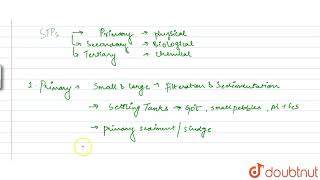 STPs → Primary → physical
↳ Secondary → Biological
↳ Tertiary → Chemical
1 Primary → Small & large → filteration & Sedimentation
→ Settling Tanks → Grit, small pebbles, Al + Fes
→ primary sediment / sludge
doubtnut